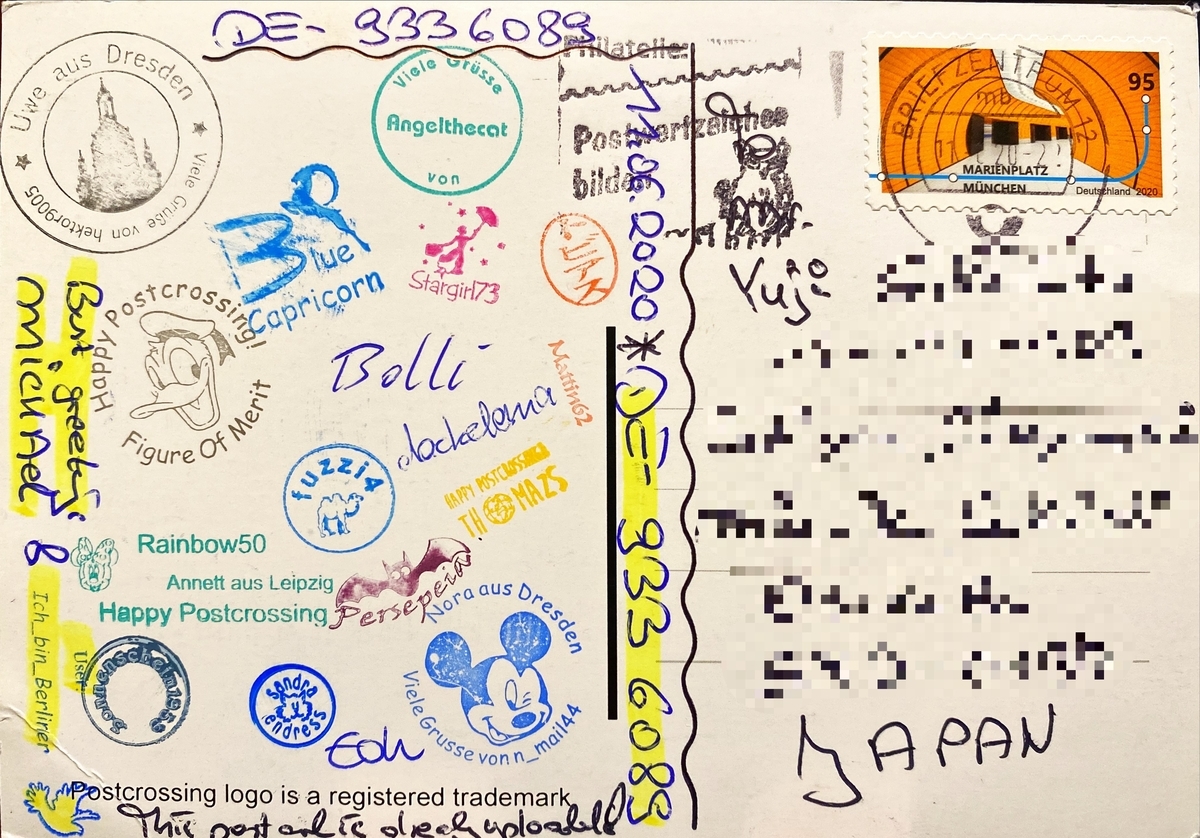 DE- 9336089
Uwe aus Dresden
Viele Grüße von hektor9005
Viele Grüsse
Angelthecat
von
Philatelie:
Postwertzeichen
bilden
11.06.2020 * DE- 933 6089
BRIEFZENTRUM 12
mb
95
MARIENPLATZ
MÜNCHEN
Deutschland 2020
Blue
Capricorn
Stargirl73
Yuji
Best greetings
MICHAEL
&
Ich_bin_Berliner
User:
Happy Postcrossing!
Figure Of Merit
Bolli
Mattin62
fuzzi4
HAPPY POSTCROSSING
THOMAZS
Rainbow50
Annett aus Leipzig
Happy Postcrossing
Persepeia
Nora aus Dresden
Viele Grüsse von n_mail44
Sonnenschein1959
Sandra
endress
JAPAN
Postcrossing logo is a registered trademark
This postcard is